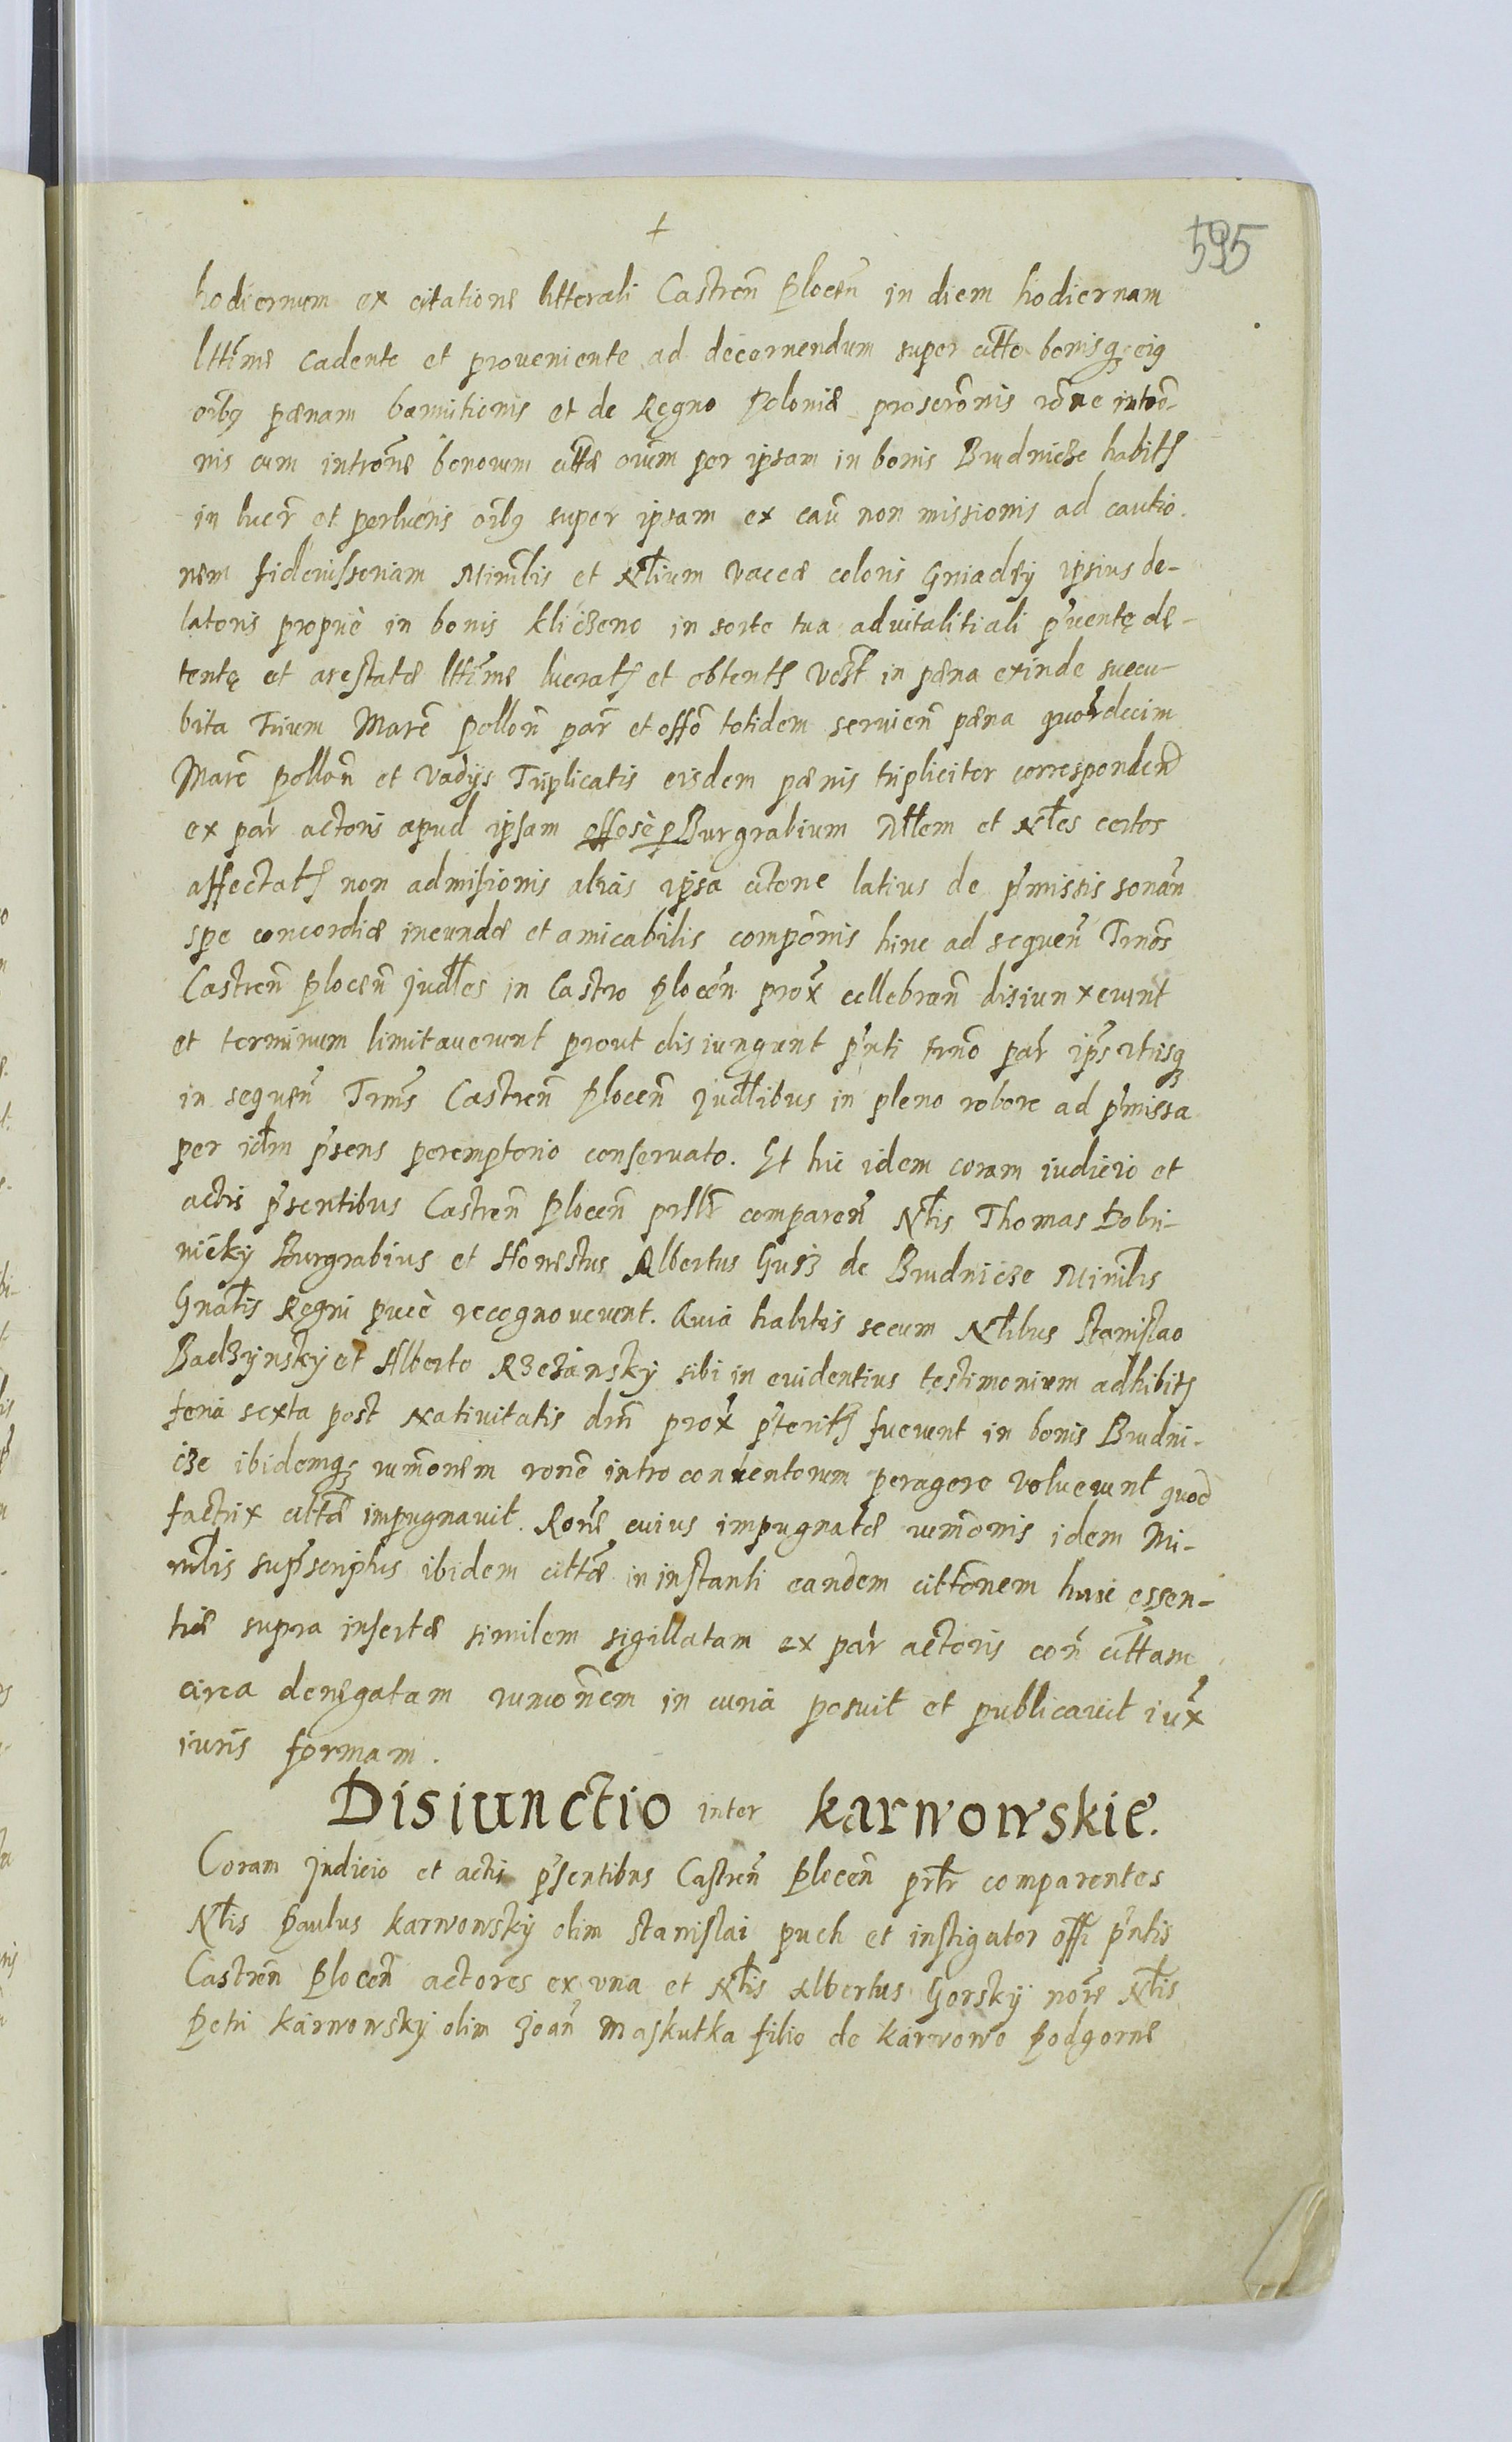 +
595
hodiernum ex citatione litterali Castreñ Ploceñ in diem hodiernam
lttīme cadente et proueniente ad decernendum super citto bonisqȝ eiꝰ
oībꝰ pænam bannitionis et de Regno Poloniæ proscrōnis rōne introō-
nis cum introne bonorum cittæ ouium per ipsam in bonis Brudnicze habitꝭ
in lucr̃ et perlucris oībꝰ super ipsam ex caũ non missionis ad cautio
nem fideiussoriam Ministlis et Nłium vaccæ coloris Gniadey ipsius de-
latoris propriè in bonis Kliczeno in sorte tua aduitalitiali p̃uentę dę-
tentę et arestatæ lttīme lucratꝭ et obtentꝭ vest̃ in pæna exinde succu-
bita Trium Marc̃ Polloñ par̃ et offō totidem seruieñ pæna quor̃decim
Marc̃ Polloñ et vadijs Triplicatis eisdem pænis tripliciter correspondeñ
ex par̃ actoris apud ipsam offosè p Burgrabium Młłem et Nłes certos
affectatꝭ non admissionis aliàs ipsa citone latius de p̃missis sonañ
spe concordiæ ineundæ et amicabilis compōnis hinc ad sequeñ Trnōs
Castreñ Ploceñ Judłłes in Castro Ploceñ prox̃ cellebrañ disiunxerunt
et terminum limitauerunt prout disiungunt p̃nti trnō par̃ ips̃ vtrisqȝ
in sequeñ Trmīs Castreñ Ploceñ Judłłibus in pleno robore ad p̃missa
per idłm p̃sens peremptorio conseruato. Et hic idem coram iudicio et
actis p̃sentibus Castreñ Ploceñ prsłr̃ compareñ Nłis Thomas Dobri-
nicky Burgrabius et Honestus Albertus Gusz de Brudnicze Ministlis
Gnałis Regni pucè recognouerunt. Quia habitis secum Nłibus Stanislao
Badzynsky et Alberto Rzezansky sibi in euidentius testimonium adhibitꝭ
feria sexta post Natiuitatis dnī prox̃ p̃teritꝭ fuerunt in bonis Brudni-
cze ibidemqȝ rumōnem ronē intro conuentorum peragere voluerunt quod
factrix cittã impugnauit. Ronē cuius impugnatæ rumōnis idem Mi-
nistlis sup̃scriptus ibidem cittæ in instanti eandem cittōnem huic essen-
tiæ supra insertæ similem sigillatam ex par̃ actoris coñ cittam
circa denegatam rumōnem in curia posuit et publicauit iux̃
iuris formam.
Disiunctio inter Karwowskie.
Coram Judicio et actis p̃sentibus Castreñ Ploceñ prłr comparentes
Nłis Paulus Karwowsky olim Stanislai puch et instigator offī p̃ntis
Castreñ Ploceñ actores ex vna et Nłis Albertus Gorsky noīe Nłis
Petri Karwowsky olim Joañ Maskutka filio de Karwowo Podgorne